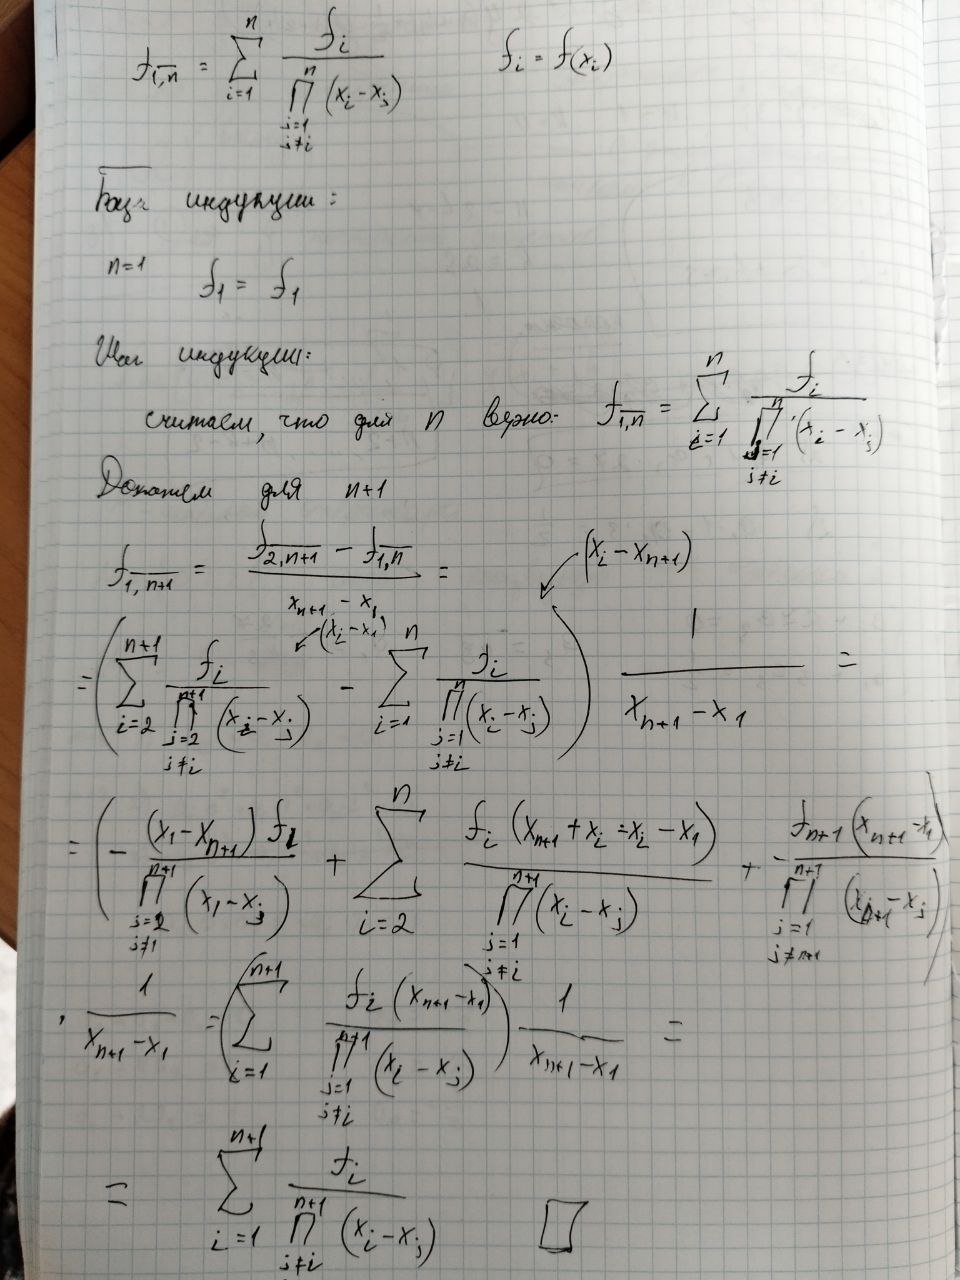 f_{\overline{1,n}} = \sum_{i=1}^{n} \frac{f_i}{\prod_{j=1, j≠i}^{n} (x_i - x_j)}    f_i = f(x_i)
База индукции:
n=1    f_1 = f_1
Шаг индукции:
считаем, что для n верно: f_{\overline{1,n}} = \sum_{i=1}^{n} \frac{f_i}{\prod_{j=1, j≠i}^{n} (x_i - x_j)}
Докажем для n+1
f_{\overline{1,n+1}} = \frac{f_{\overline{2,n+1}} - f_{\overline{1,n}}}{x_{n+1} - x_1} =    (x_i - x_{n+1})
(x_i - x_1)
= ( \sum_{i=2}^{n+1} \frac{f_i}{\prod_{j=2, j≠i}^{n+1} (x_i - x_j)} - \sum_{i=1}^{n} \frac{f_i}{\prod_{j=1, j≠i}^{n} (x_i - x_j)} ) \frac{1}{x_{n+1} - x_1} =
= ( - \frac{(x_1 - x_{n+1}) f_1}{\prod_{j=2, j≠1}^{n+1} (x_1 - x_j)} + \sum_{i=2}^{n} \frac{f_i (x_{n+1} + x_i - x_i - x_1)}{\prod_{j=1, j≠i}^{n+1} (x_i - x_j)} + \frac{f_{n+1} (x_{n+1} - x_1)}{\prod_{j=1, j≠n+1}^{n+1} (x_{n+1} - x_j)} )
· \frac{1}{x_{n+1} - x_1} = ( \sum_{i=1}^{n+1} \frac{f_i (x_{n+1} - x_1)}{\prod_{j=1, j≠i}^{n+1} (x_i - x_j)} ) \frac{1}{x_{n+1} - x_1} =
= \sum_{i=1}^{n+1} \frac{f_i}{\prod_{j≠i}^{n+1} (x_i - x_j)} □